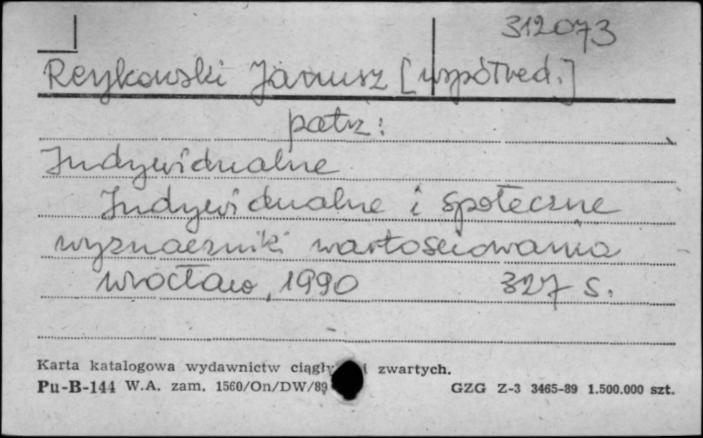 312073
Reykowski Janusz [współred.]
patrz:
Indywidualne
Indywidualne i społeczne
wyznaczniki wartościowania
Wrocław, 1990 327 s.
Karta katalogowa wydawnictw ciągły i zwartych.
Pu-B-144 W.A. zam. 1560/On/DW/89 GZG Z-3 3465-89 1.500.000 szt.